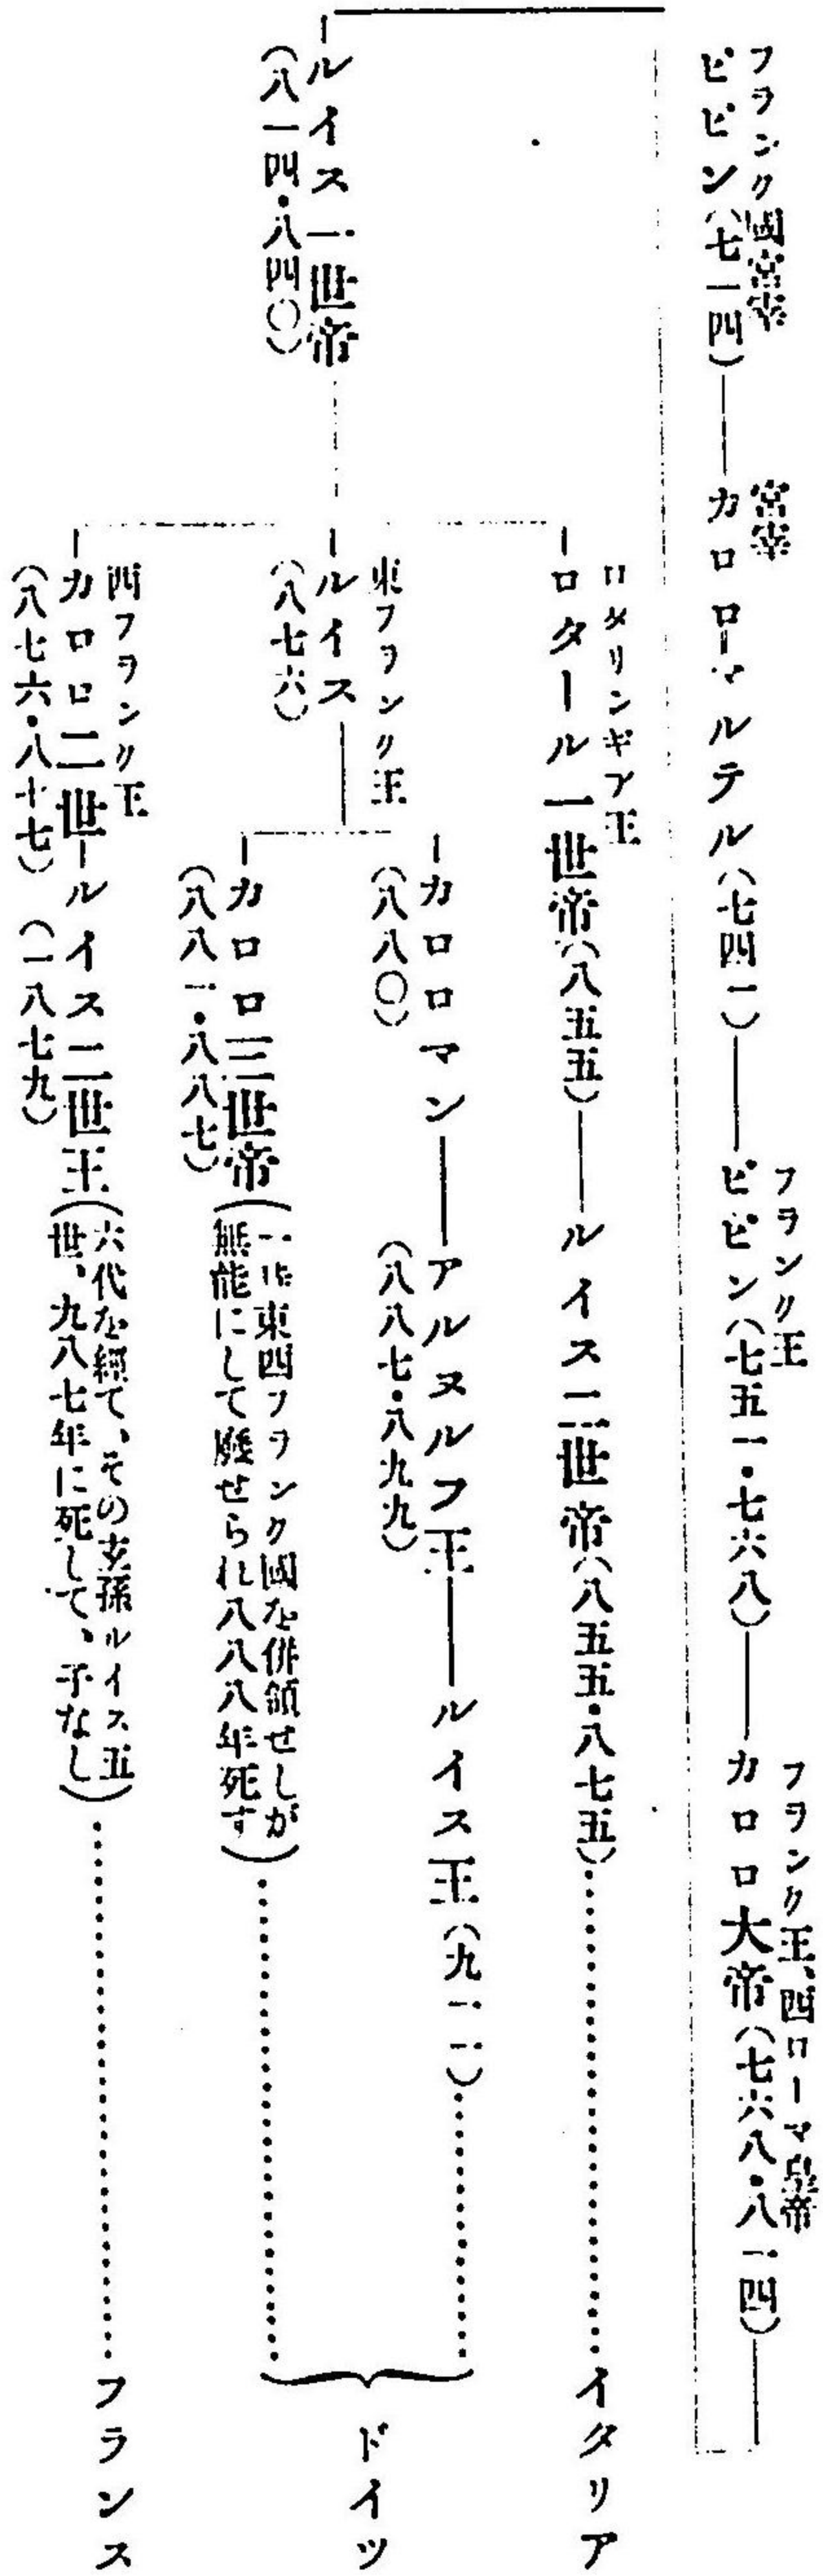 フランク國宮宰
ピピン(七一四)
宮宰
カロロ―マルテル(七四一)
フランク王
ピピン(七五一・七六八)
フランク王、西ローマ皇帝
カロロ大帝(七六八・八一四)
ルイス一世帝
(八一四・八四〇)
ロタリンギア王
ロタール一世帝(八五五)
ルイス二世帝(八五五・八七五)
イタリア
東フランク王
ルイス
(八七六)
カロロマン
(八八〇)
アルヌルフ王
(八八七・八九九)
ルイス王(九一一)
カロロ三世帝
(八八一・八八七)
(一時東西フランク國を併領せしが
無能にして廢せられ八八八年死す)
ドイツ
西フランク王
カロロ二世
(八七六・八十七)
ルイス二世王
(一八七九)
(六代を經て、その玄孫ルイス五
世、九八七年に死して、子なし)
フランス